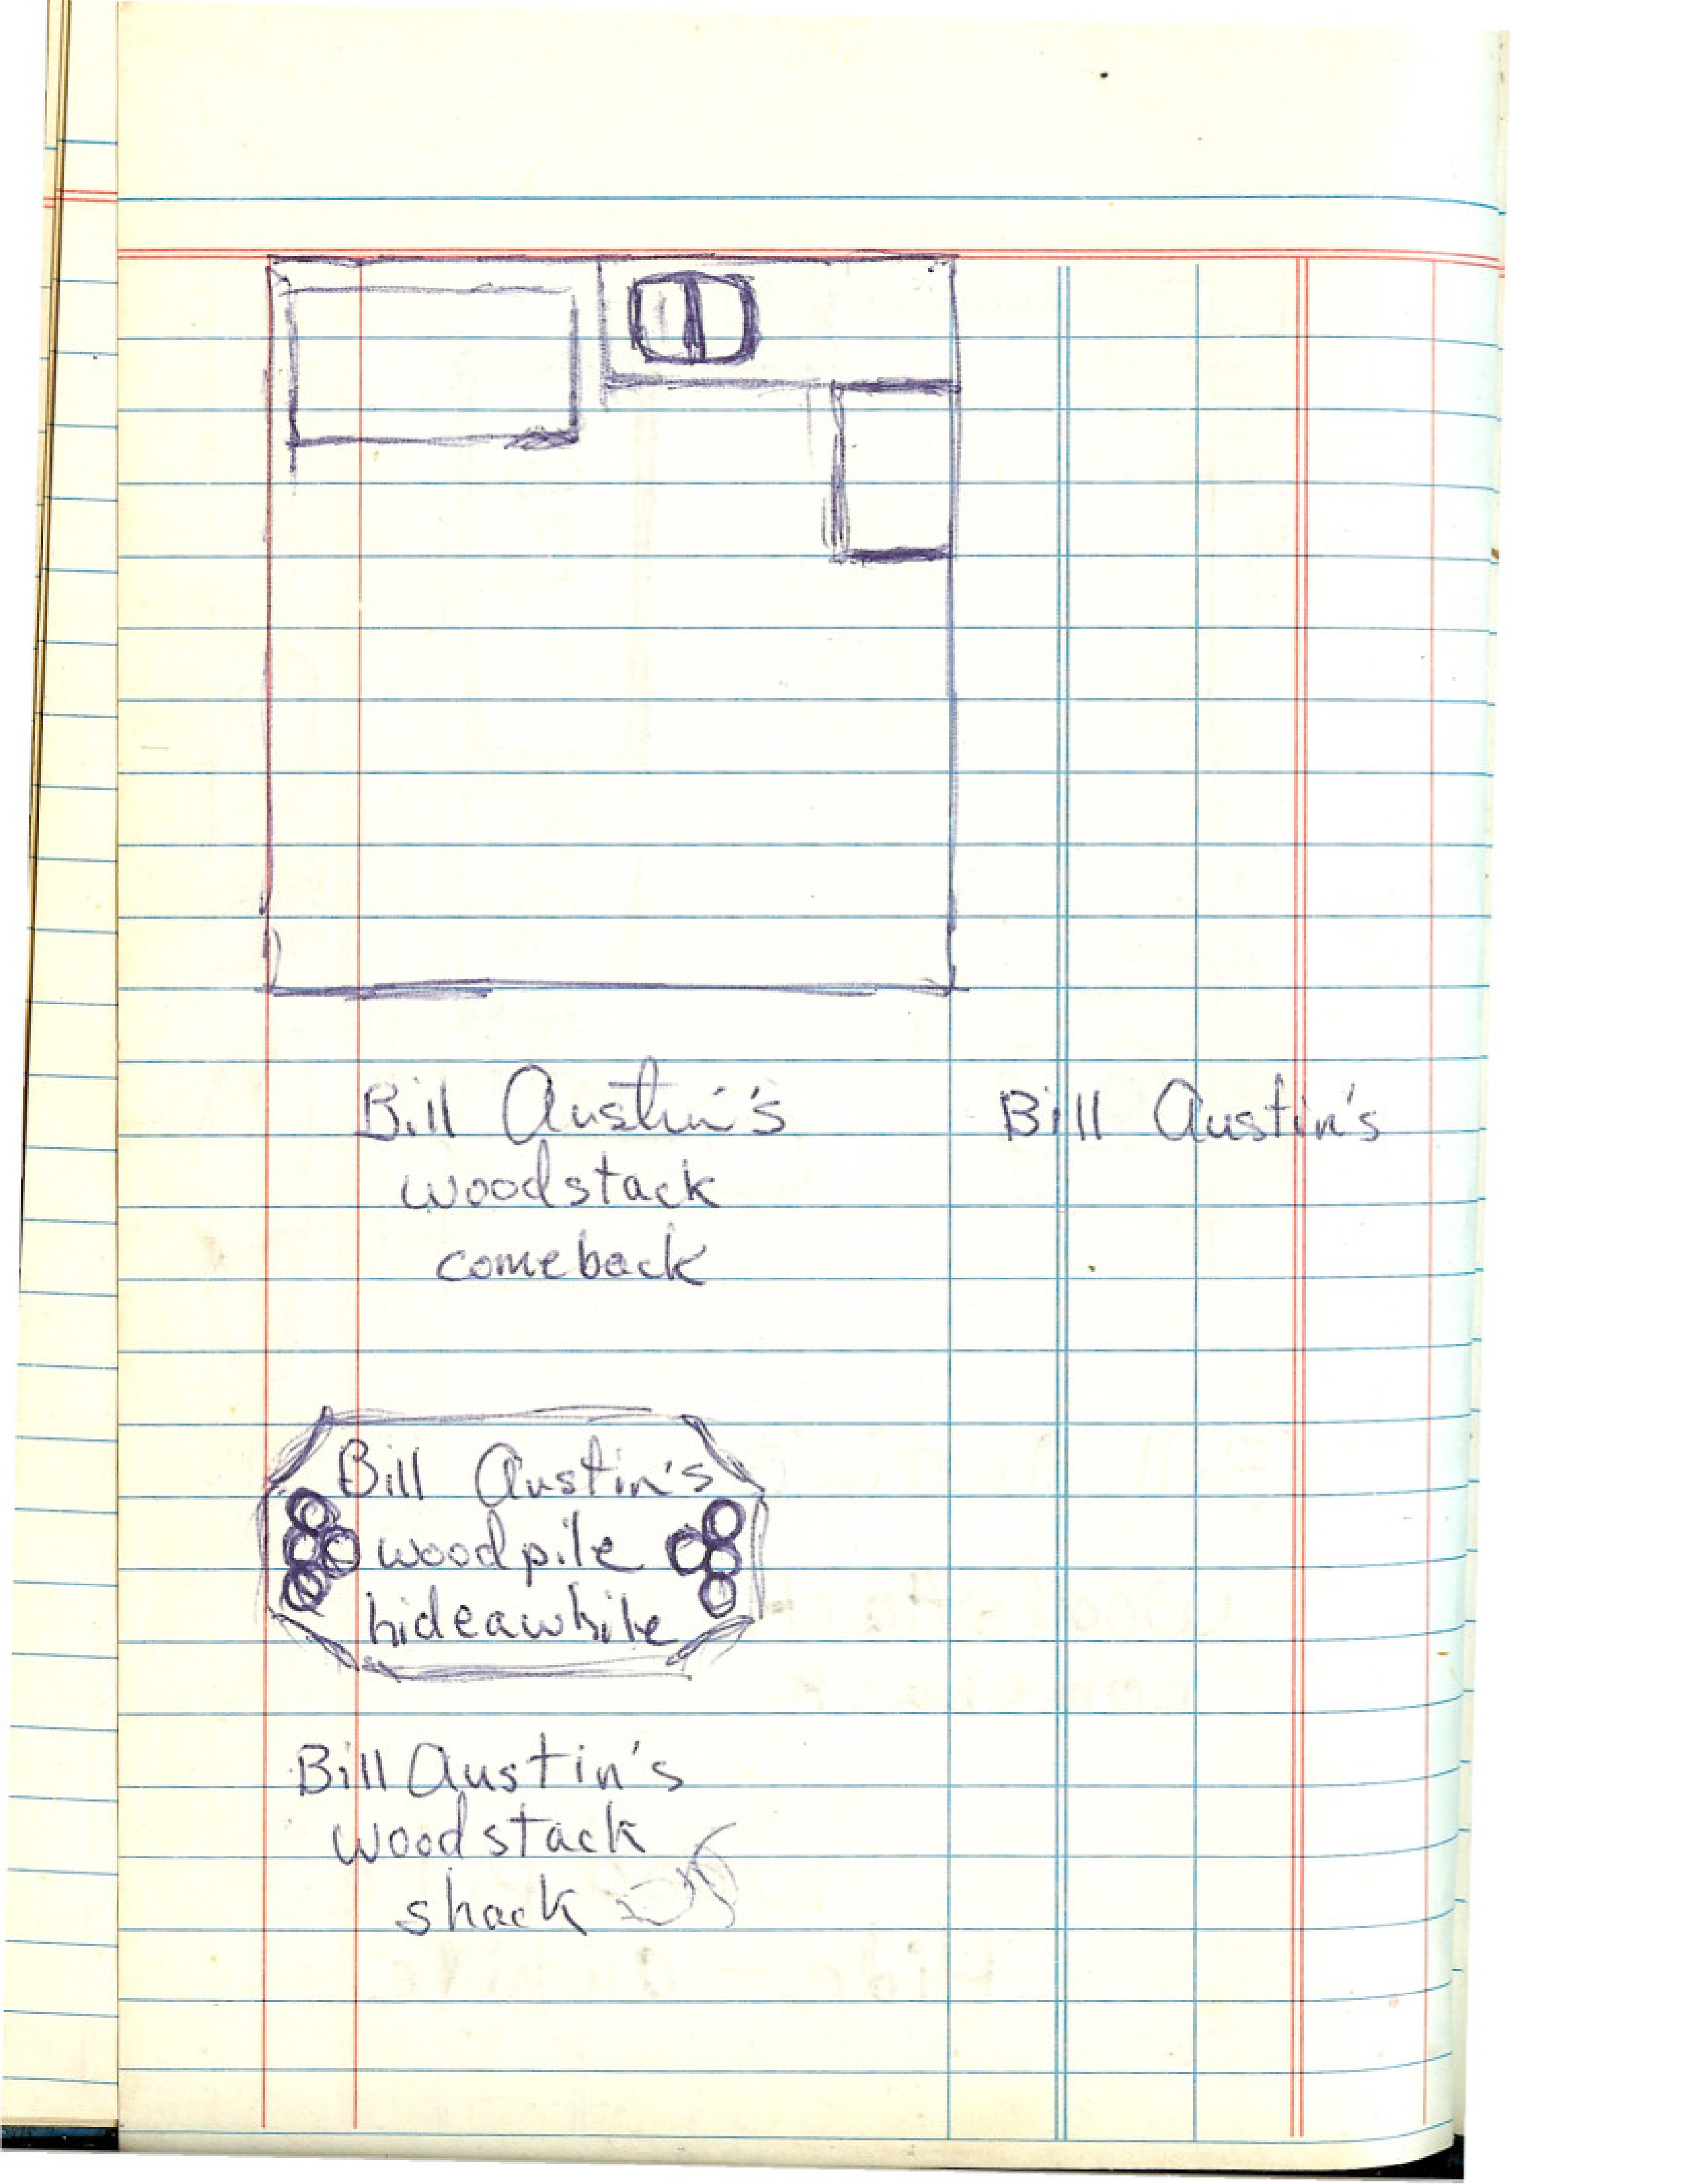 Bill Austin's
woodstack
comeback
Bill Austin's
Bill Austin's
woodpile
hideawhile
Bill Austin's
woodstack
shack